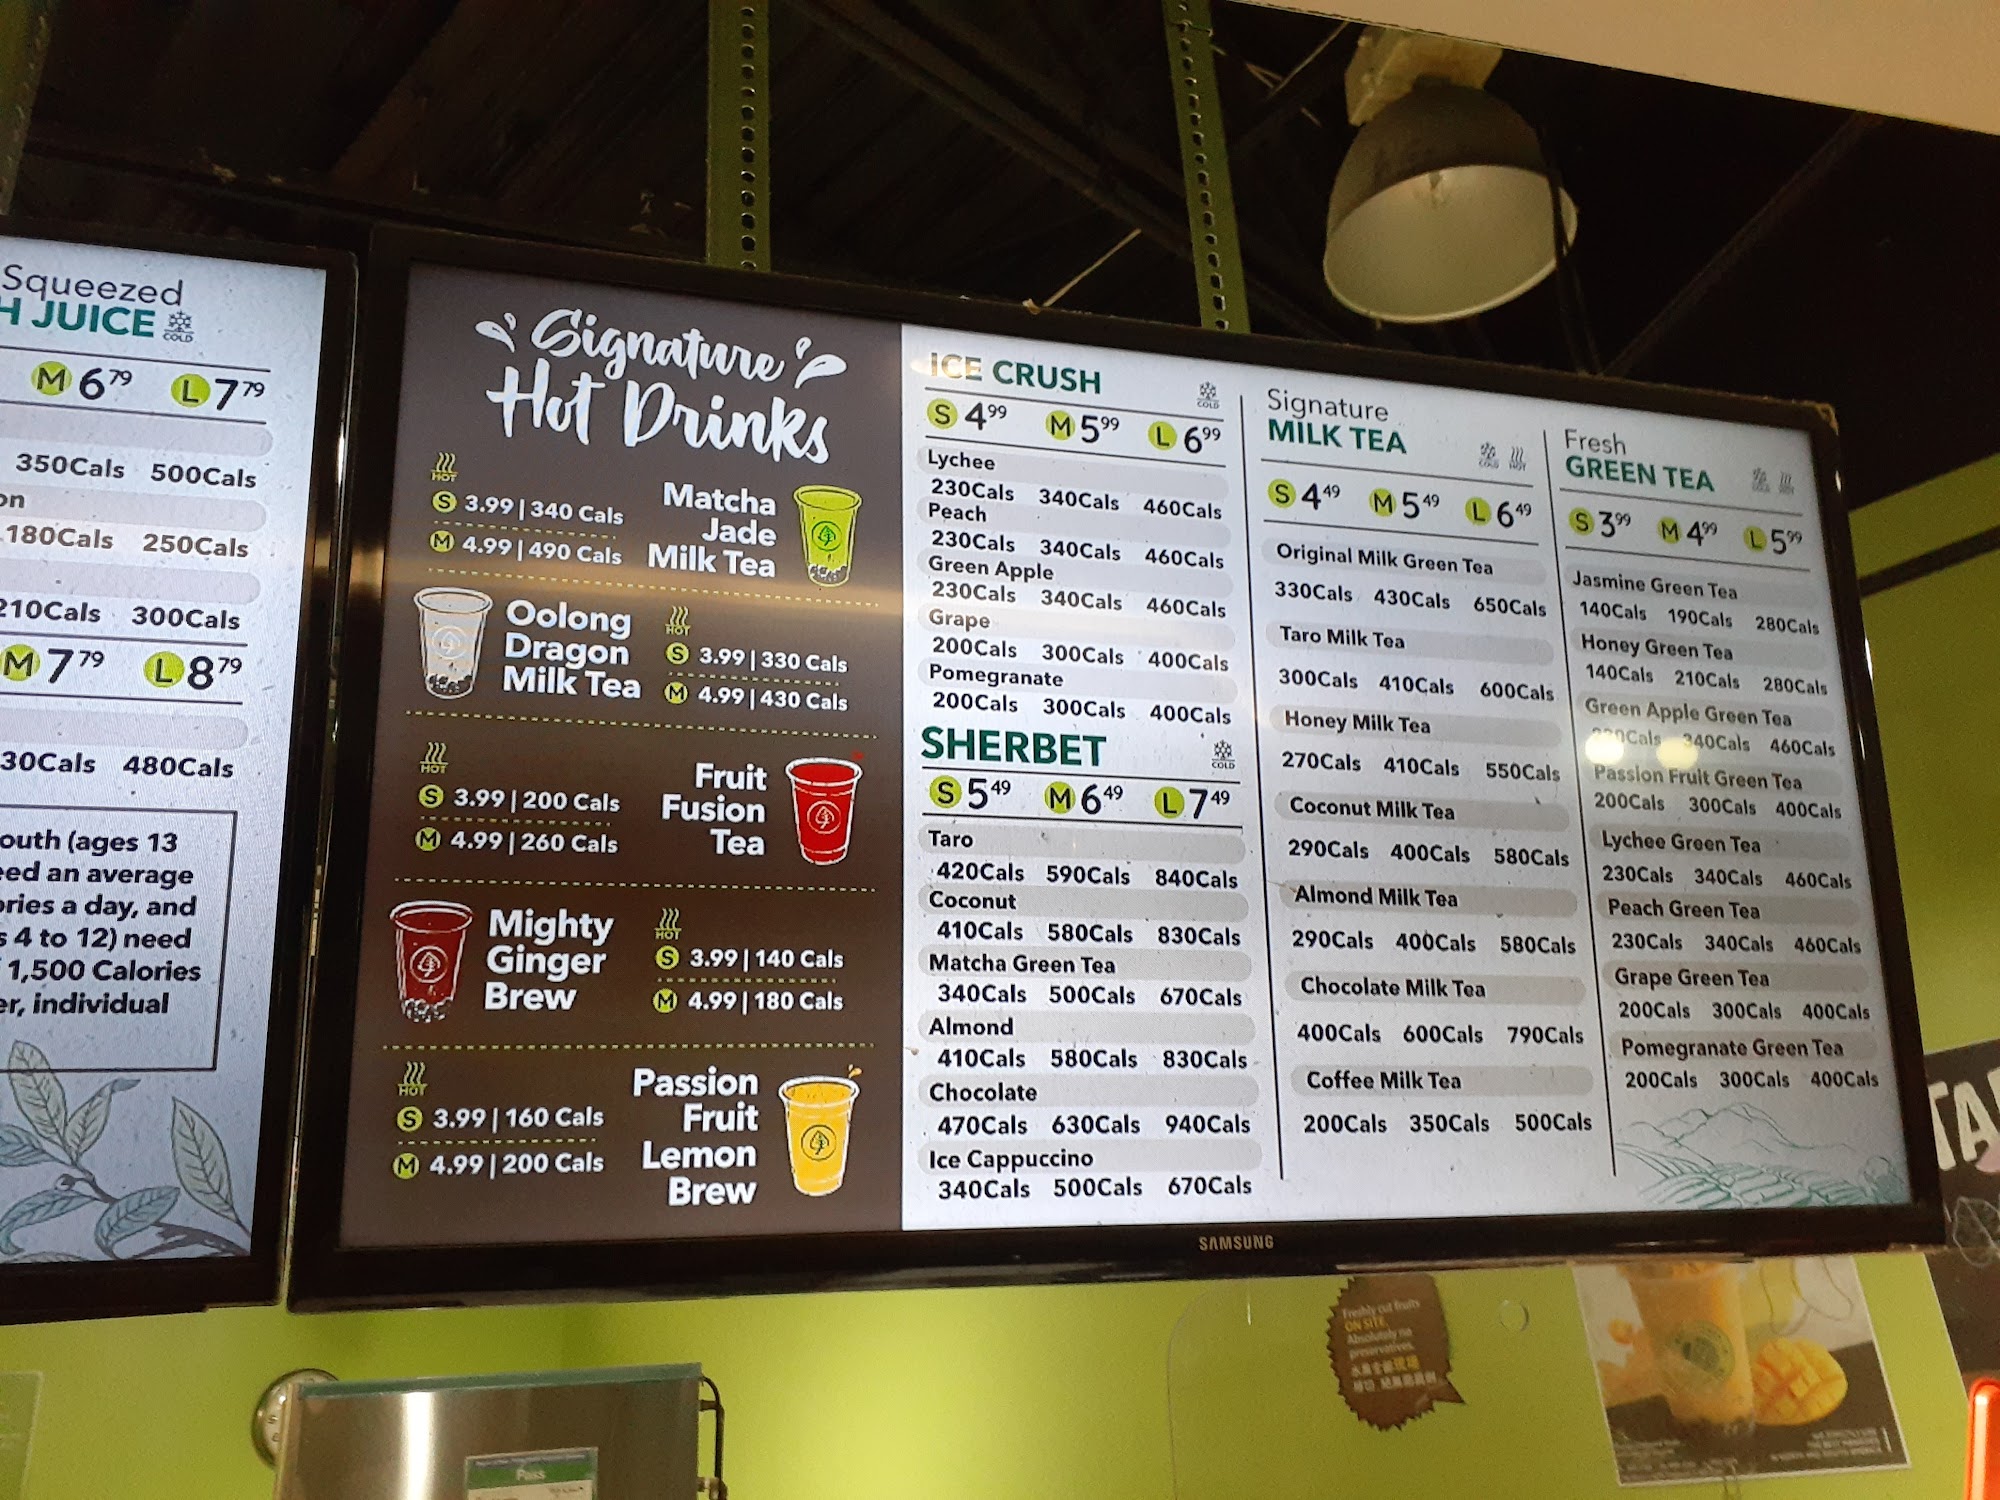 Squeezed
H JUICE
COLD
M 6.79 L 7.79
350Cals 500Cals
on
180Cals 250Cals
210Cals 300Cals
M 7.79 L 8.79
30Cals 480Cals
outh (ages 13
eed an average
ories a day, and
s 4 to 12) need
1,500 Calories
er, individual
Signature
Hot Drinks
HOT
S 3.99 | 340 Cals
M 4.99 | 490 Cals
Matcha
Jade
Milk Tea
Oolong
Dragon
Milk Tea
HOT
S 3.99 | 330 Cals
M 4.99 | 430 Cals
HOT
S 3.99 | 200 Cals
M 4.99 | 260 Cals
Fruit
Fusion
Tea
Mighty
Ginger
Brew
HOT
S 3.99 | 140 Cals
M 4.99 | 180 Cals
HOT
S 3.99 | 160 Cals
M 4.99 | 200 Cals
Passion
Fruit
Lemon
Brew
ICE CRUSH
COLD
S 4.99 M 5.99 L 6.99
Lychee
230Cals 340Cals 460Cals
Peach
230Cals 340Cals 460Cals
Green Apple
230Cals 340Cals 460Cals
Grape
200Cals 300Cals 400Cals
Pomegranate
200Cals 300Cals 400Cals
SHERBET
COLD
S 5.49 M 6.49 L 7.49
Taro
420Cals 590Cals 840Cals
Coconut
410Cals 580Cals 830Cals
Matcha Green Tea
340Cals 500Cals 670Cals
Almond
410Cals 580Cals 830Cals
Chocolate
470Cals 630Cals 940Cals
Ice Cappuccino
340Cals 500Cals 670Cals
Signature
MILK TEA
COLD HOT
S 4.49 M 5.49 L 6.49
Original Milk Green Tea
330Cals 430Cals 650Cals
Taro Milk Tea
300Cals 410Cals 600Cals
Honey Milk Tea
270Cals 410Cals 550Cals
Coconut Milk Tea
290Cals 400Cals 580Cals
Almond Milk Tea
290Cals 400Cals 580Cals
Chocolate Milk Tea
400Cals 600Cals 790Cals
Coffee Milk Tea
200Cals 350Cals 500Cals
Fresh
GREEN TEA
S 3.99 M 4.99 L 5.99
Jasmine Green Tea
140Cals 190Cals 280Cals
Honey Green Tea
140Cals 210Cals 280Cals
Green Apple Green Tea
340Cals 460Cals
Passion Fruit Green Tea
200Cals 300Cals 400Cals
Lychee Green Tea
230Cals 340Cals 460Cals
Peach Green Tea
230Cals 340Cals 460Cals
Grape Green Tea
200Cals 300Cals 400Cals
Pomegranate Green Tea
200Cals 300Cals 400Cals
SAMSUNG
TA
Freshly cut fruits
ON SITE.
Absolutely no
preservatives.
Pass